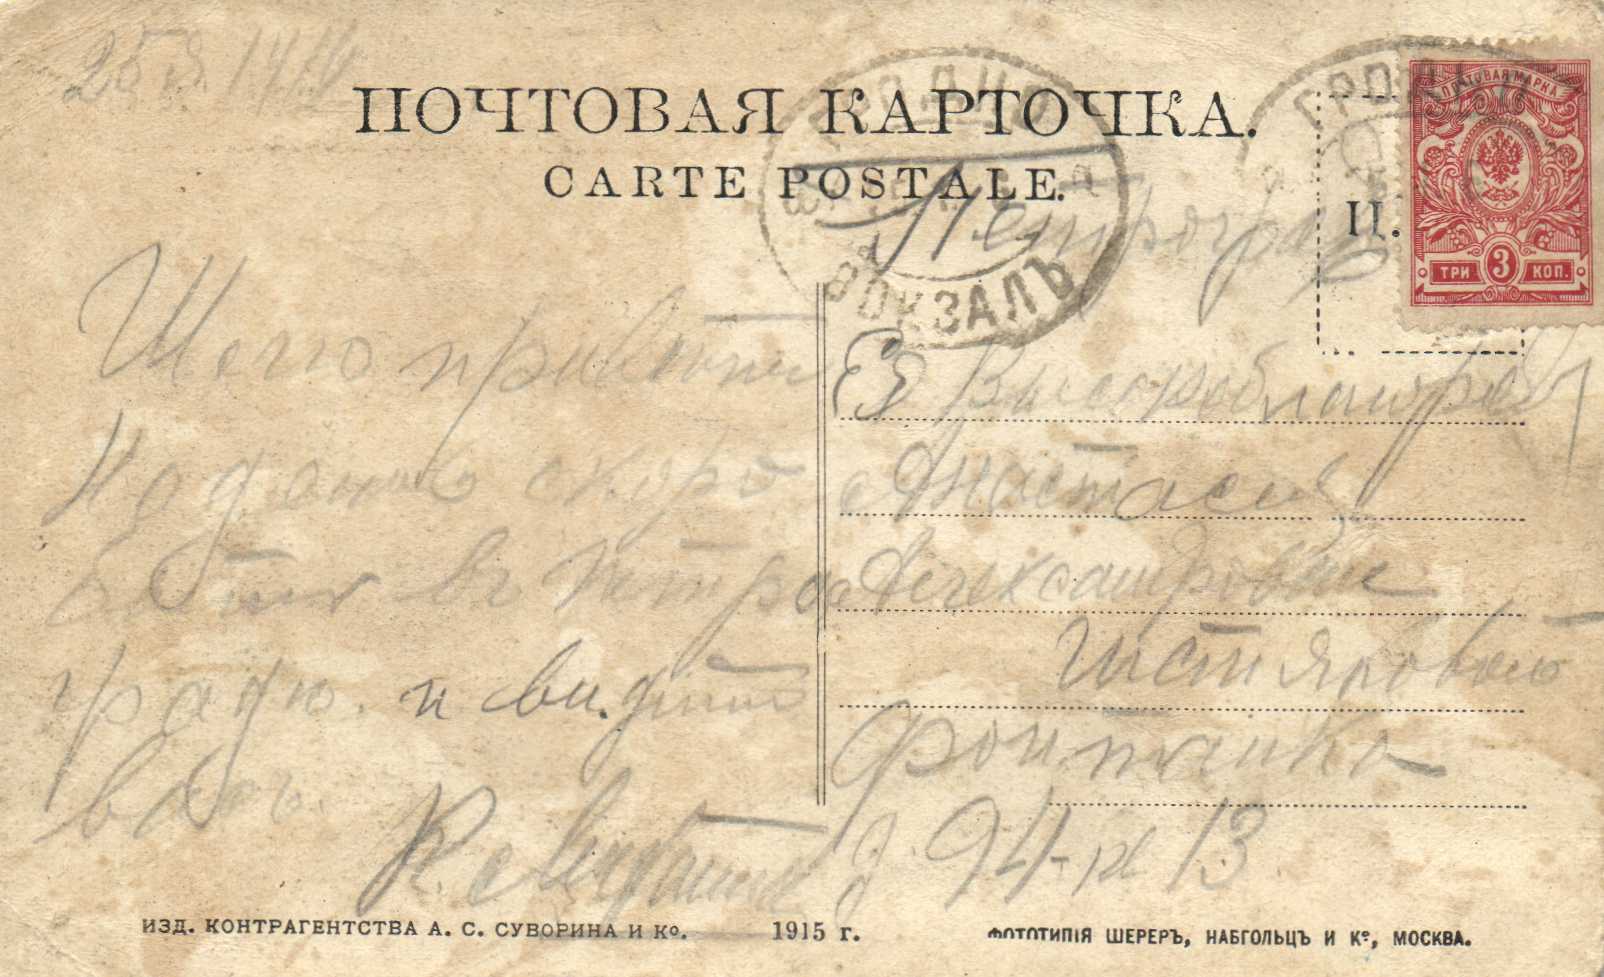 ПОЧТОВАЯ КАРТОЧКА.
CARTE POSTALE.
ГРОДНО
ВОКЗАЛЪ
ПОЧТОВАЯ МАРКА
ТРИ 3 КОП.
Петроград
Шлю привет
Надеюсь скоро
быть въ Петро
граде. и видеть
васъ.
Ея Высокоблагород
Анастасии
Александровне
Фонтанка
д 94 - к 13
ИЗД. КОНТРАГЕНТСТВА А. С. СУВОРИНА И Ко. 1915 г.
ФОТОТИПІЯ ШЕРЕРЪ, НАБГОЛЬЦЪ И Ко, МОСКВА.